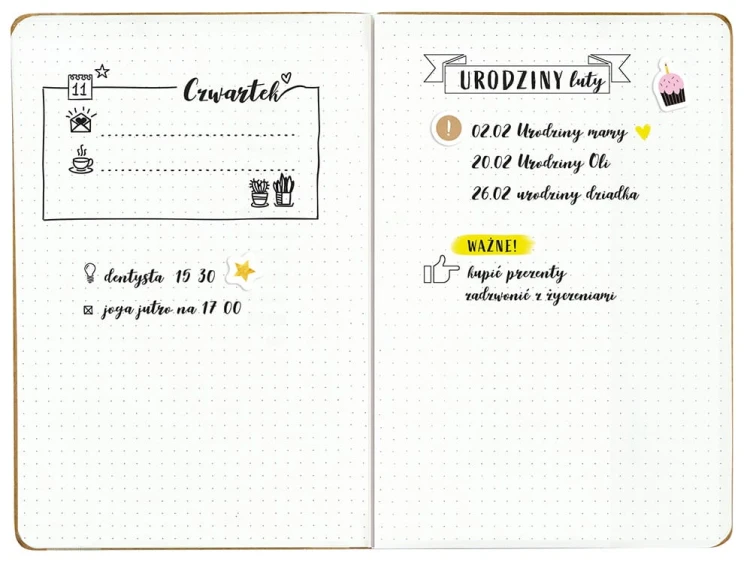 11
Czwartek
dentysta 15 30
joga jutro na 17 00
URODZINY luty
!
02.02 Urodziny mamy
20.02 Urodziny Oli
26.02 urodziny dziadka
WAŻNE!
kupić prezenty
zadzwonić z życzeniami